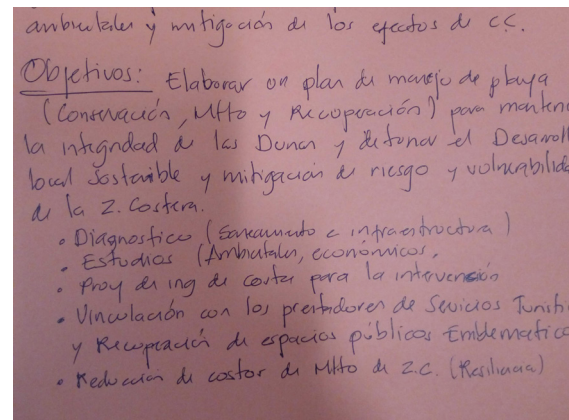 ambientales y mitigación de los efectos de c.c.
Objetivos: Elaborar un plan de manejo de playa
(Conservación, Mtto y Recuperación) para mantene
la integridad de las Dunas y detonar el Desarroll
local Sostenible y mitigación de riesgo y vulnerabilida
de la Z. Costera.
• Diagnostico (Saneamiento e infraestructura)
• Estudios (Ambientales, económicos,
• Proy de ing de costas para la intervención
• Vinculación con los prestadores de Servicios Turísti
y Recuperación de espacios públicos Emblematico
• Reducción de costos de Mtto de Z.C. (Resiliencia)